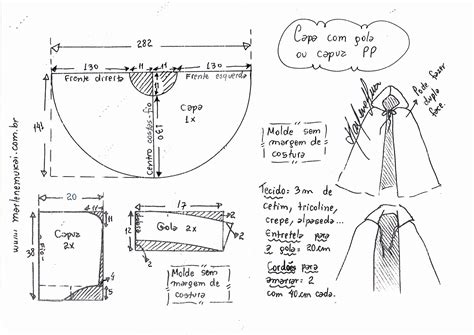 Capa com gola
ou capuz PP
282
130
11
11
130
Frente direita
Frente esquerda
Capa
1x
Centro costas-fio
130
141
www.marlenemukai.com.br
Molde sem
margem de
costura
Pode fazer
dupla
face.
20
Capuz
2x
fio
11
4
5
17
Gola 2x
12
2
2
2
Molde sem
margem de
costura
Tecido: 3m de
cetim, tricoline,
crepe, alpaseda...
Entretela para
a gola = 20cm
Cordões para
amarrar: 2
com 40cm cada.